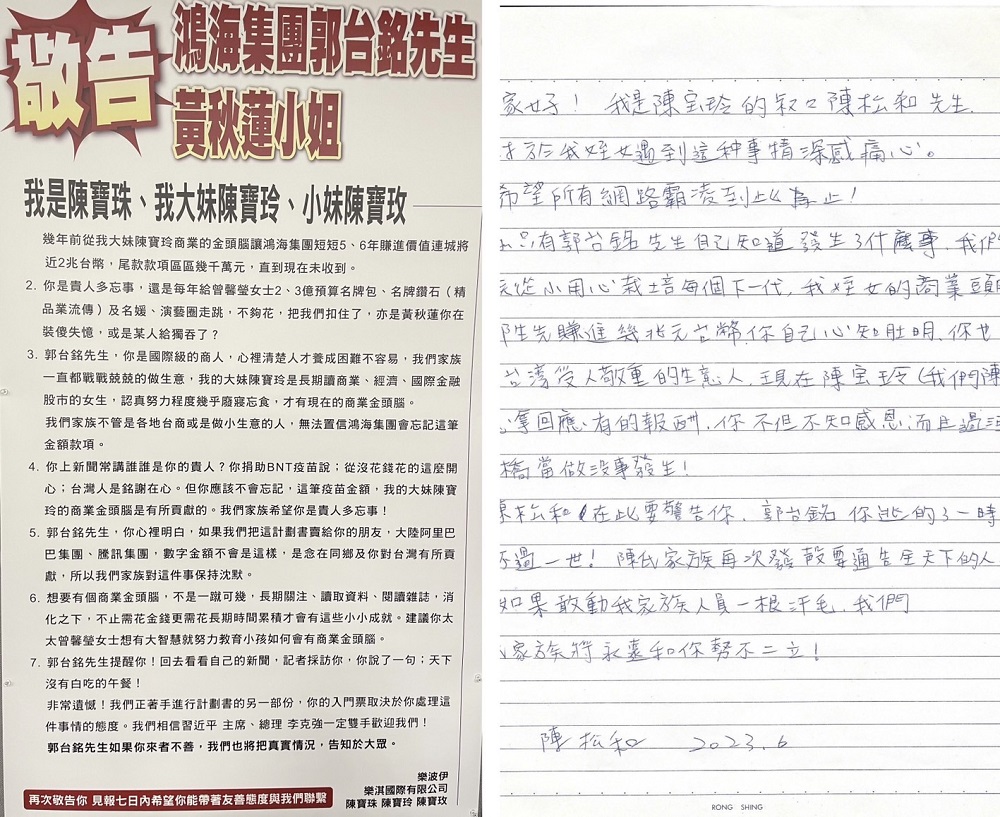 敬告
鴻海集團郭台銘先生
黃秋蓮小姐
我是陳寶珠、我大妹陳寶玲、小妹陳寶玫
幾年前從我大妹陳寶玲商業的金頭腦讓鴻海集團短短5、6年賺進價值連城將
近2兆台幣，尾款款項區區幾千萬元，直到現在未收到。
2. 你是貴人多忘事，還是每年給曾馨瑩女士2、3億預算名牌包、名牌鑽石（精
品業流傳）及名媛、演藝圈走跳，不夠花，把我們扣住了，亦是黃秋蓮你在
裝傻失憶，或是某人給獨吞了？
3. 郭台銘先生，你是國際級的商人，心裡清楚人才養成困難不容易，我們家族
一直都戰戰兢兢的做生意，我的大妹陳寶玲是長期讀商業、經濟、國際金融
股市的女生，認真努力程度幾乎廢寢忘食，才有現在的商業金頭腦。
我們家族不管是各地台商或是做小生意的人，無法置信鴻海集團會忘記這筆
金額款項。
4. 你上新聞常講誰誰是你的貴人？你捐助BNT疫苗說；從沒花錢花的這麼開
心；台灣人是銘謝在心。但你應該不會忘記，這筆疫苗金額，我的大妹陳寶
玲的商業金頭腦是有所貢獻的。我們家族希望你是貴人多忘事！
5. 郭台銘先生，你心裡明白，如果我們把這計劃書賣給你的朋友，大陸阿里巴
巴集團、騰訊集團，數字金額不會是這樣，是念在同鄉及你對台灣有所貢
獻，所以我們家族對這件事保持沈默。
6. 想要有個商業金頭腦，不是一蹴可幾，長期關注、讀取資料、閱讀雜誌，消
化之下，不止需花金錢更需花長期時間累積才會有這些小小成就。建議你太
太曾馨瑩女士想有大智慧就努力教育小孩如何會有商業金頭腦。
7. 郭台銘先生提醒你！回去看看自己的新聞，記者採訪你，你說了一句；天下
沒有白吃的午餐！
非常遺憾！我們正著手進行計劃書的另一部份，你的入門票取決於你處理這
件事情的態度。我們相信習近平 主席、總理 李克強一定雙手歡迎我們！
郭台銘先生如果你來者不善，我們也將把真實情況，告知於大眾。
樂波伊
樂淇國際有限公司
再次敬告你 見報七日內希望你能帶著友善態度與我們聯繫
陳寶珠 陳寶玲 陳寶玫
家好！ 我是陳宝玲的叔々陳松和先生.
於我姪女遇到這种事情深感痛心。
希望所有網路霸凌到此為止！
只有郭台銘先生自己知道發生了什麼事.我們
從小用心栽培每個下一代,我姪女的商業頭
生先賺進幾兆元台幣,你自己心知肚明.你也
台湾受人敬重的生意人.現在陳宝玲(我們陳
拿回應有的報酬.你不但不知感恩.而且過河
橋當做没事發生！
松和在此要警告你.郭台銘你逃的了一時
不過一世！陳氏家族再次發 要通告全天下的人
如果敢動我家族人員一根汗毛.我們
家族將永遠和你勢不二立！
陳松和 2023.6
RONG SHING